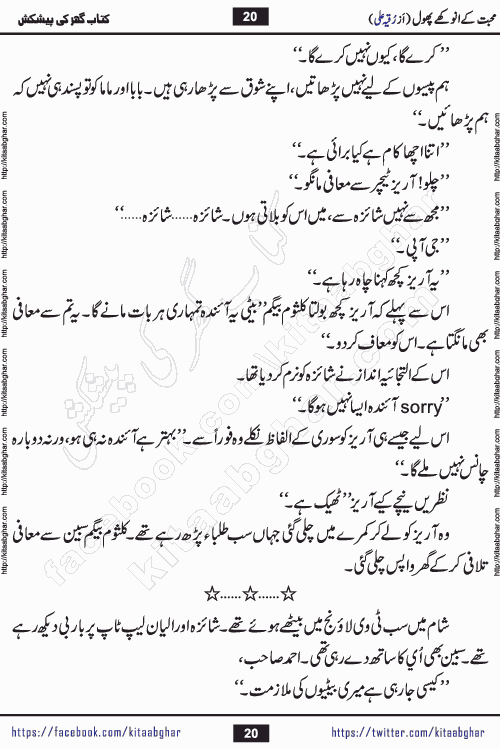 محبت کے انوکھے پھول (از رُقیہ علی) 20 کتاب گھر کی پیشکش
’’کرے گا، کیوں نہیں کرے گا۔‘‘
ہم پیسوں کے لیے نہیں پڑھاتیں، اپنے شوق سے پڑھا رہی ہیں۔ بابا اور ماما کو تو پسند ہی نہیں کہ
ہم پڑھائیں۔‘‘
’’اتنا اچھا کام ہے کیا برائی ہے۔‘‘
’’چلو! آریز ٹیچر سے معافی مانگو۔‘‘
’’مجھ سے نہیں شائزہ سے، میں اس کو بلاتی ہوں۔ شائزہ......شائزہ......‘‘
’’جی آپی۔‘‘
’’یہ آریز کچھ کہنا چاہ رہا ہے۔‘‘
اس سے پہلے کہ آریز کچھ بولتا کلثوم بیگم ’’بیٹی یہ آئندہ تمہاری ہر بات مانے گا۔ یہ تم سے معافی
بھی مانگتا ہے۔ اس کو معاف کر دو۔‘‘
اس کے التجائیہ انداز نے شائزہ کو نرم کر دیا تھا۔
’’sorry آئندہ ایسا نہیں ہو گا۔‘‘
اس لیے جیسے ہی آریز کو سوری کے الفاظ نکلے وہ فوراً سے۔ ’’بہتر ہے آئندہ نہ ہی ہو، ورنہ دوبارہ
چانس نہیں ملے گا۔‘‘
نظریں نیچے کیے آریز ’’ٹھیک ہے۔‘‘
وہ آریز کو لے کر کمرے میں چلی گئی جہاں سب طلباء پڑھ رہے تھے۔ کلثوم بیگم سبین سے معافی
تلافی کر کے گھر واپس چلی گئی۔
☆......☆......☆
شام میں سب ٹی وی لاؤنج میں بیٹھے ہوئے تھے۔ شائزہ اور الیان لیپ ٹاپ پر باربی دیکھ رہے
تھے۔ سبین بھی اُن کا ساتھ دے رہی تھی۔ احمد صاحب،
’’کیسی جا رہی ہے میری بیٹیوں کی ملازمت۔‘‘
https://facebook.com/kitaabghar 20 https://twitter.com/kitaabghar
http://kitaabghar.com http://kitaabghar.com http://kitaabghar.com http://kitaabghar.com http://kitaabghar.com http://kitaabghar.com
http://kitaabghar.com http://kitaabghar.com http://kitaabghar.com http://kitaabghar.com http://kitaabghar.com http://kitaabghar.com
کتاب گھر کی پیشکش
facebook.com/kitaabghar
kitaabghar.com